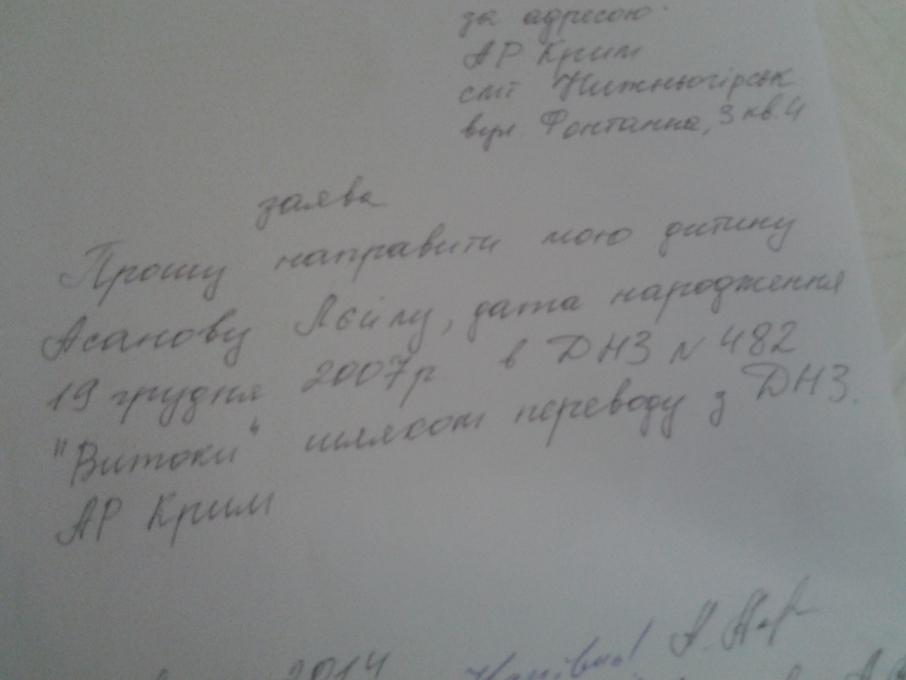 за адресою:
АР Крим
смт Нижньогірськ
вул. Фонтанна, 3 кв. 4
заява
Прошу направити мою дитину
Асанову Лєйлу, дата народження
19 грудня 2007р в ДНЗ N 482
"Витоки" шляхом переводу з ДНЗ.
АР Крим
2014